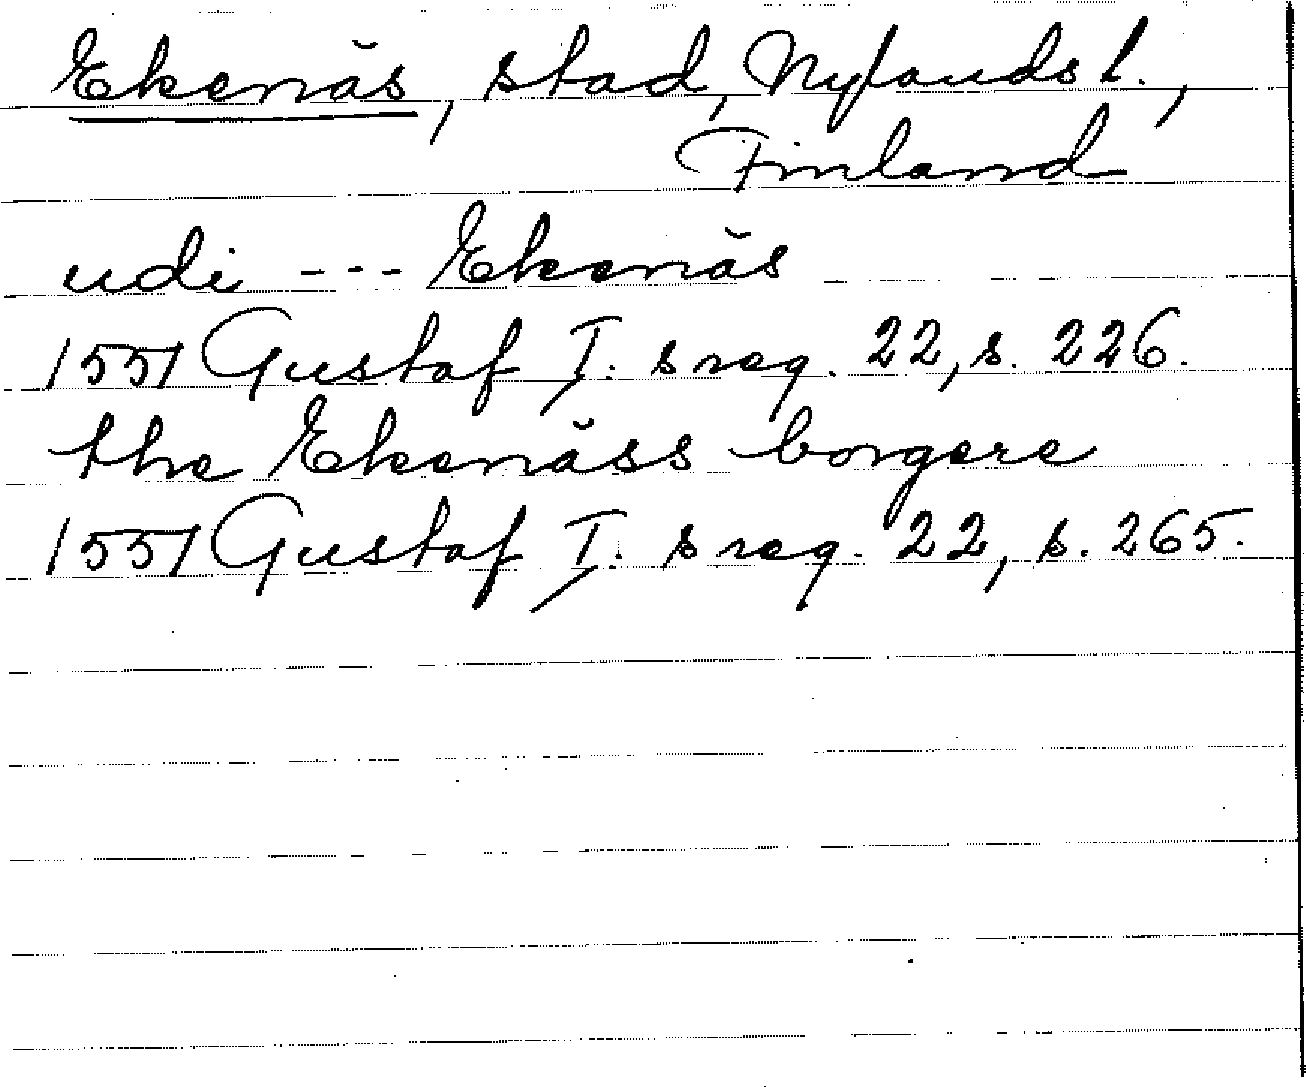 Ekenäs, stad, Nylands l.,
Finland
udi --- Ekenäs
1551 Gustaf I:s reg. 22, s. 226.
the Ekenäss borgere
1551 Gustaf I:s reg. 22, s. 265.